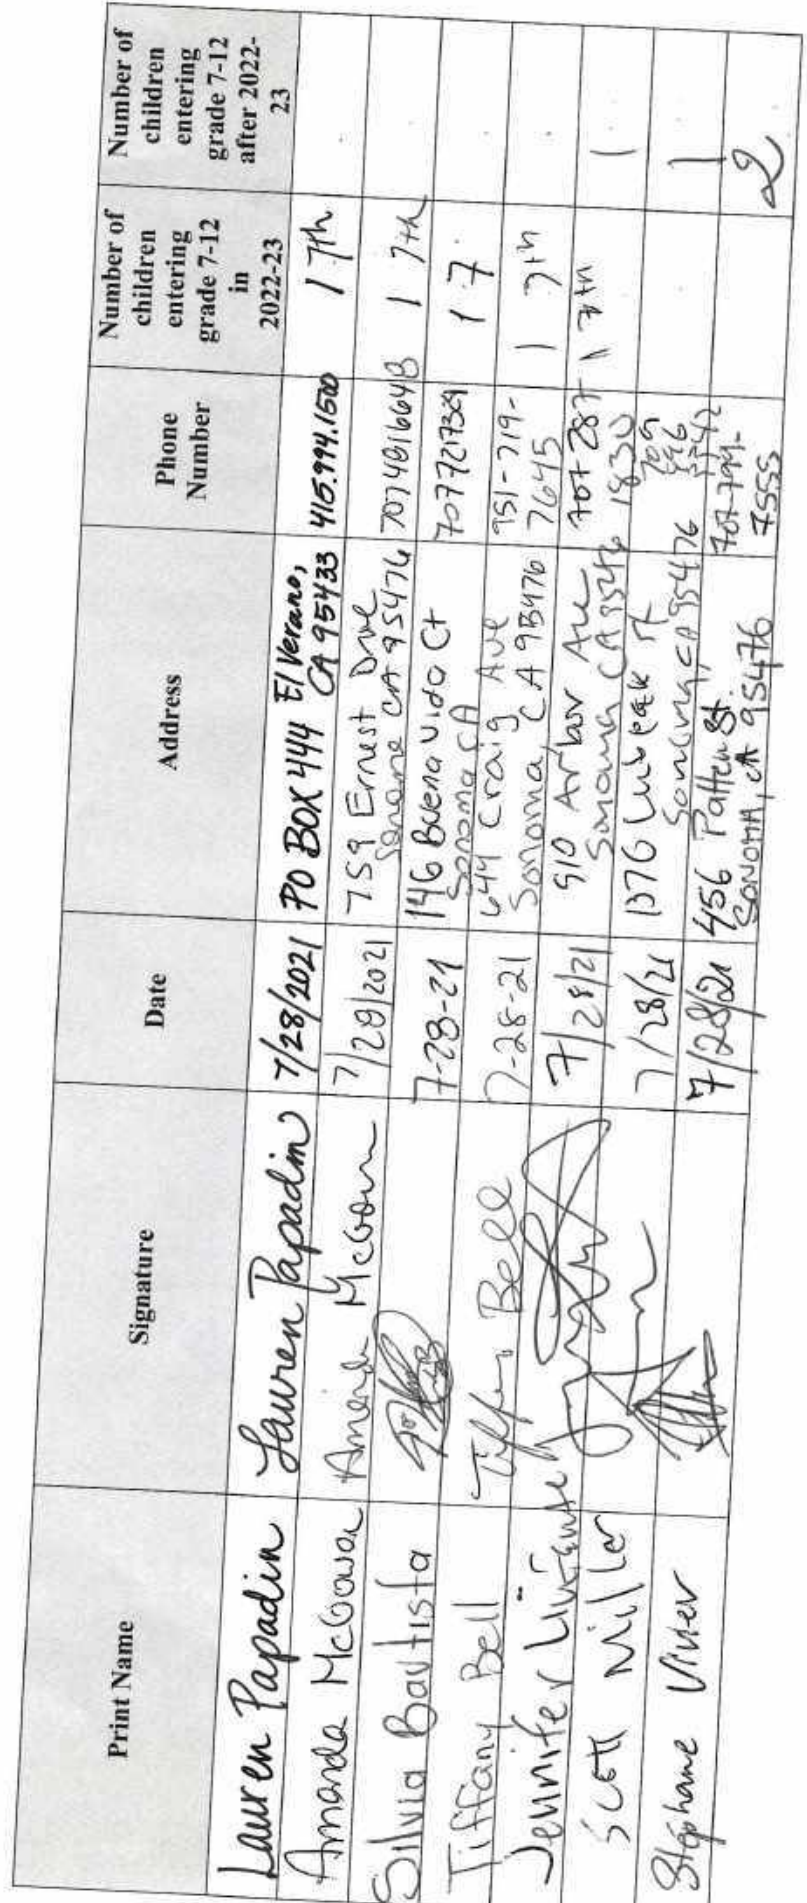 Print Name
Signature
Date
Address
Phone
Number
Number of
children
entering
grade 7-12
in
2022-23
Number of
children
entering
grade 7-12
after 2022-
23
Lauren Papadin
Lauren Papadin
7/28/2021
PO BOX 444 El Verano,
CA 95433
415.994.1500
1 7th
Amanda McGowan
Amanda McGowan
7/28/2021
759 Ernest Drive
Sonoma CA 95476
7074816648
1 7th
Silvia Bautista
7-28-21
146 Buena Vida Ct
Sonoma CA
7077217329
1 7
Tiffany Bell
Tiffany Bell
7-28-21
644 Craig Ave
Sonoma, CA 95476
951-719-
7645
1 7th
Jennifer
7/28/21
910 Arbor Ave
Sonoma CA 95476
707 287
1830
1 7th
1
Scott Miller
7/28/21
1376
Sonoma, CA 95476
1
Stéphane Vivier
7/28/21
456 Patten St.
SONOMA, CA 95476
707-799-
7555
2